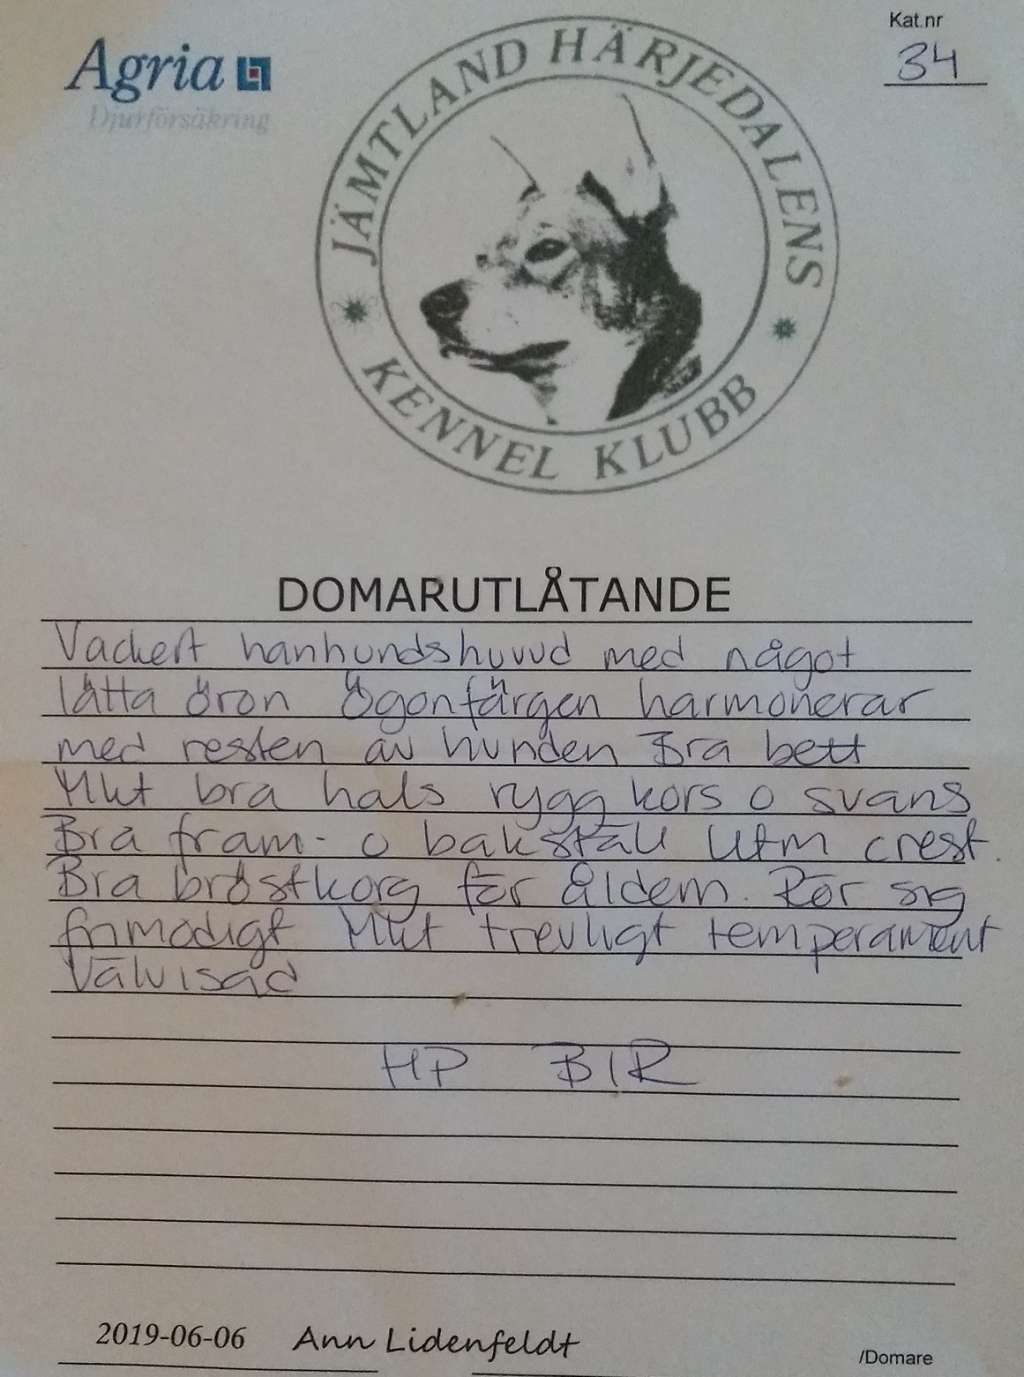 Agria
Djurförsäkring
Kat.nr
34
JÄMTLAND HÄRJEDALENS
KENNEL KLUBB
DOMARUTLÅTANDE
Vackert hanhundshuvud med något
lätta öron Ögonfärgen harmonerar
med resten av hunden Bra bett
Mkt bra hals rygg kors o svans
Bra fram- o bakställ Utm crest.
Bra bröstkorg för åldern. Rör sig
frimodigt Mkt trevligt temperament
Välvisad
HP BIR
2019-06-06 Ann Lidenfeldt
/Domare